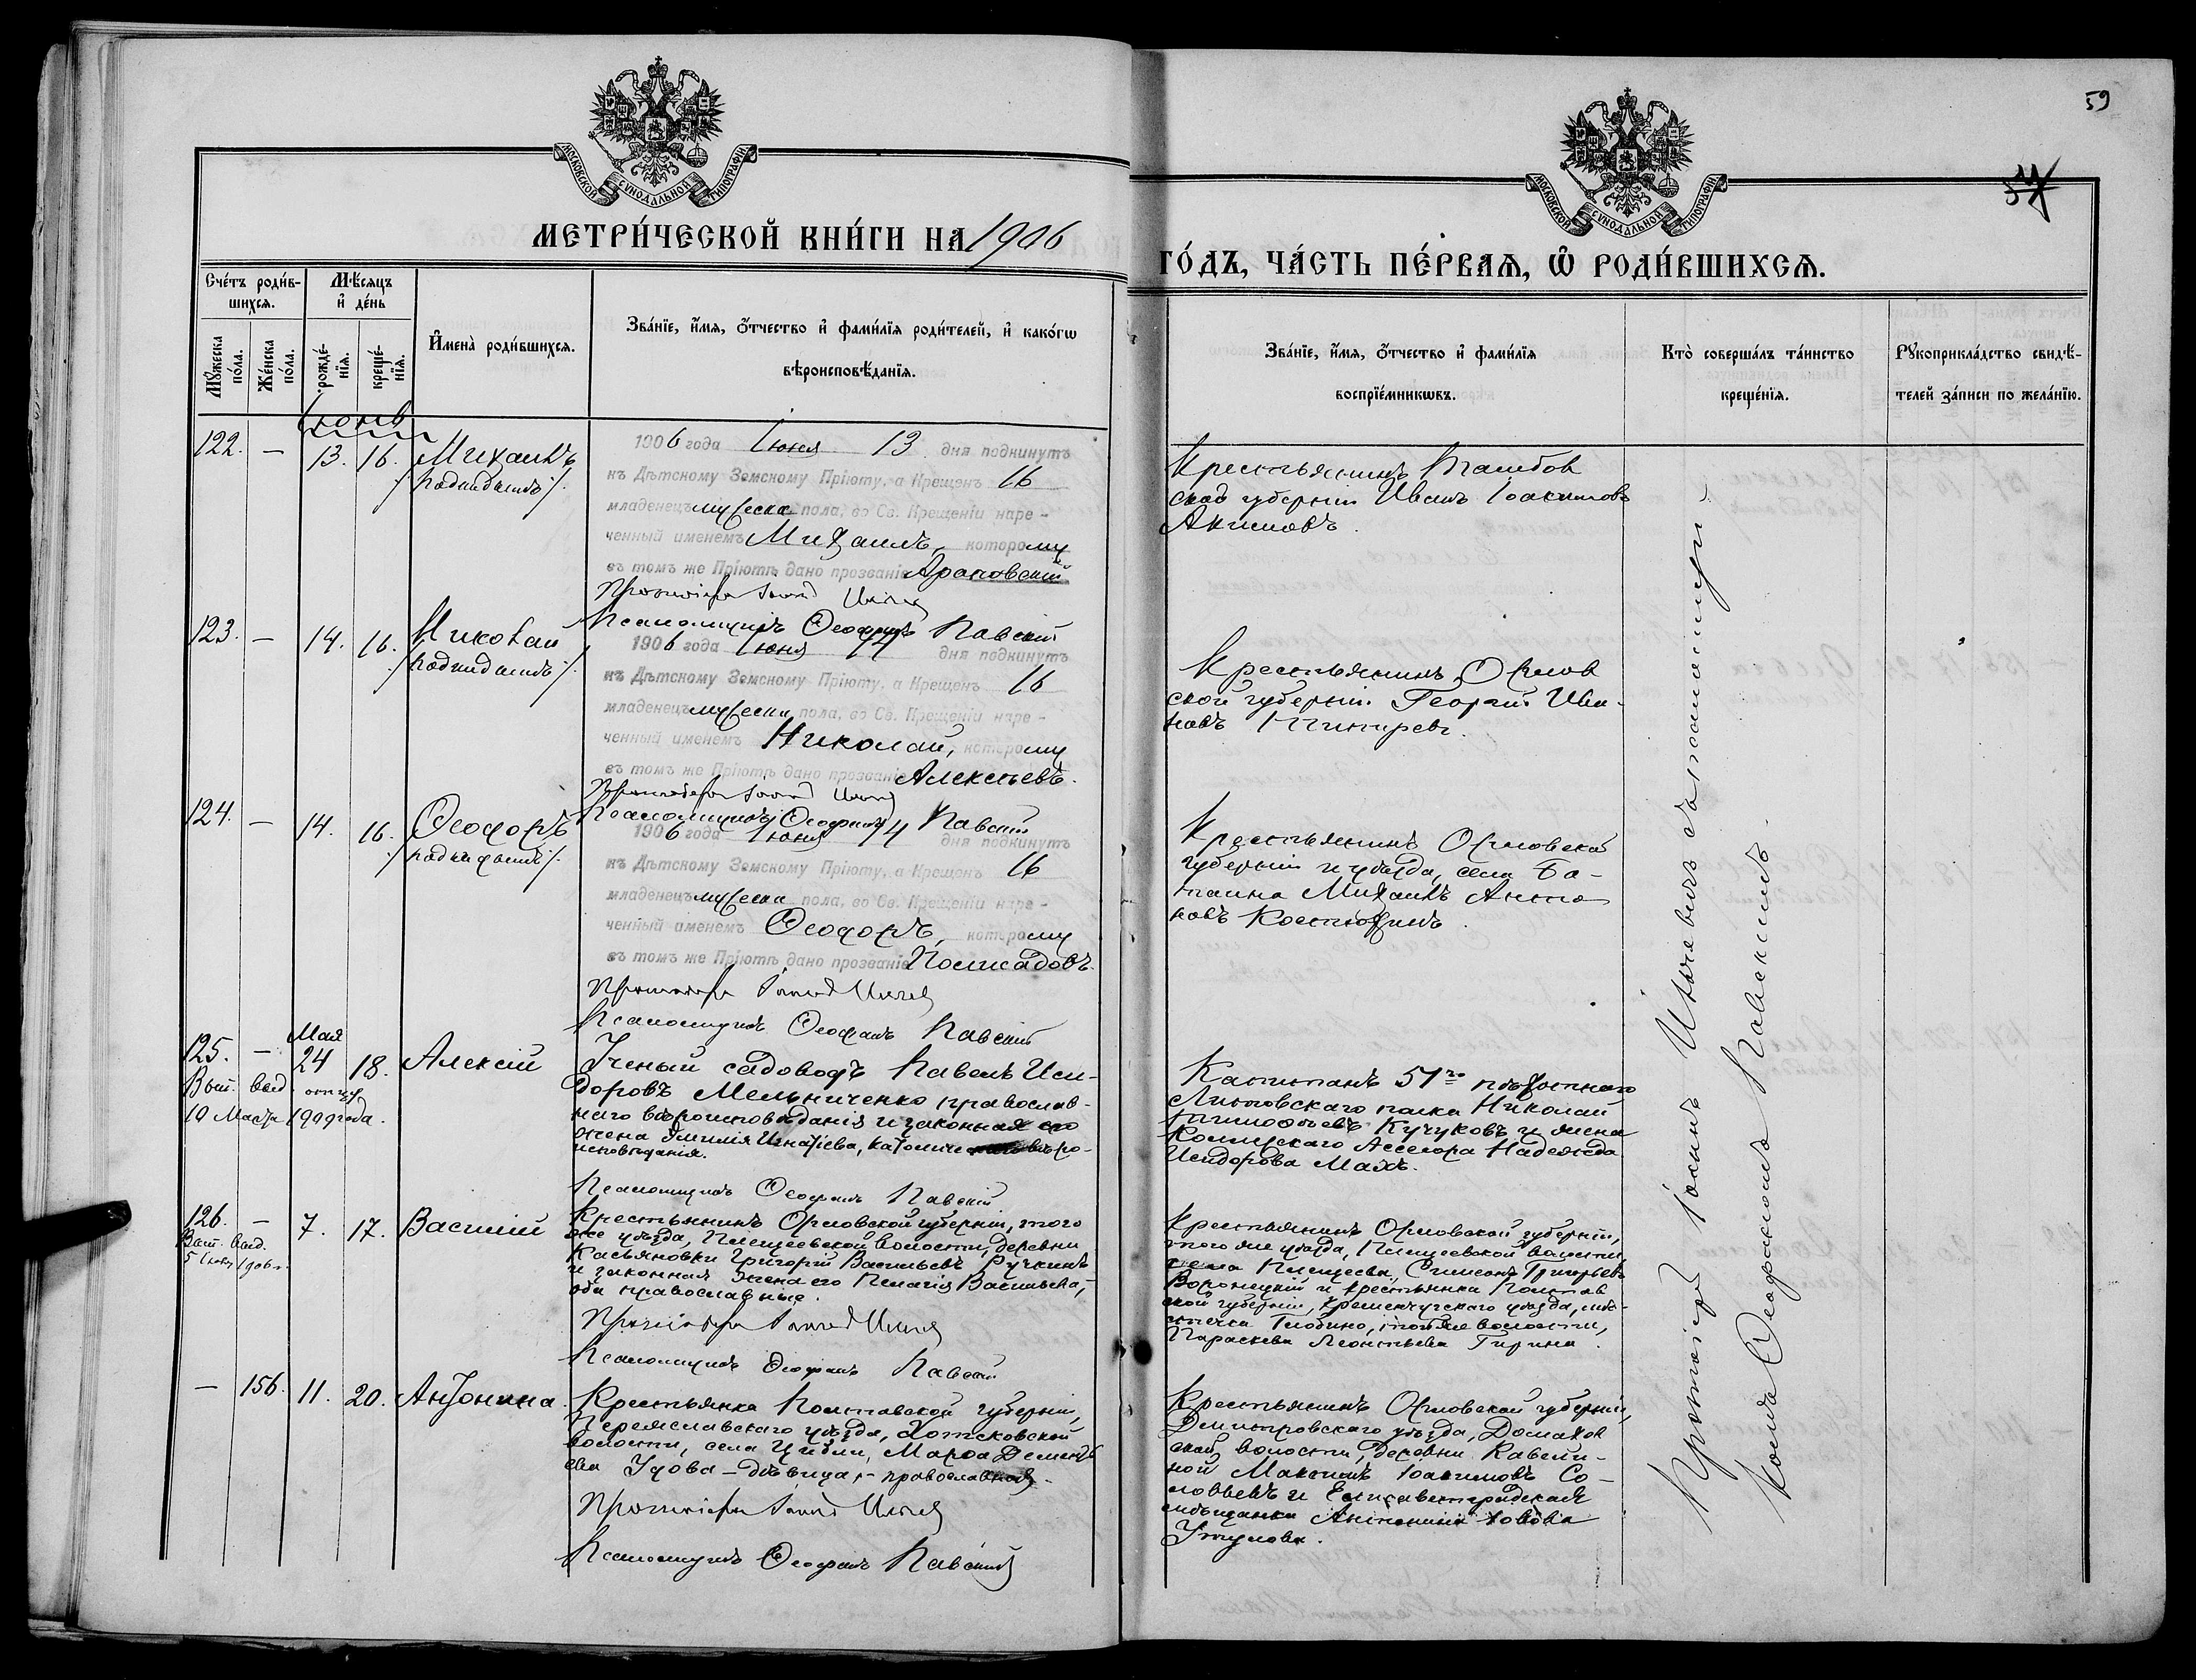 59
МОСКОВСКОЙ СѴНОДАЛЬНОЙ ТИПОГРАФІИ
МОСКОВСКОЙ СѴНОДАЛЬНОЙ ТИПОГРАФІИ
МЕТРИ́ЧЕСКОЙ КНИ́ГИ НА 1906
ГО́ДЪ, ЧА́СТЬ ПЕ́РВАѦ, Ѡ РОДИ́ВШИХСѦ.
Сче́тъ роди́в-
шихсѧ.
Мѣ́сѧцъ
и де́нь
Мꙋ́жеска по́ла.
Же́нска по́ла.
рожде́-
нїѧ.
креще́-
нїѧ.
Имена̀ роди́вшихсѧ.
Зва́нїе, и́мѧ, ѻ́тчество и фами́лїѧ роди́телей, и како́гѡ
вѣроисповѣ́данїѧ.
Зва́нїе, и́мѧ, ѻ́тчество и фами́лїѧ
воспрїе́мникѡвъ.
Кто̀ соверша́лъ та́инство
креще́нїѧ.
Рꙋкоприкла́дство свидѣ́-
телей за́писи по жела́нїю.
Іюнь
122. — 13. 16. Михаилъ
/подкидышъ/.
1906 года Іюня 13 дня подкинутъ
къ Дѣтскому Земскому Пріюту, а Крещенъ 16
младенецъ мужеска пола, во Св. Крещеніи наре-
ченный именемъ Михаилъ, которому
въ томъ же Пріютѣ дано прозваніе Араповскій
Псаломщикъ Ѳеофанъ Павскій
Крестьянинъ Тамбов
ской губерніи Иванъ Іоакимовъ
Акимовъ.
123. — 14. 16. Николай
/подкидышъ/.
1906 года Іюня 14 дня подкинутъ
къ Дѣтскому Земскому Пріюту, а Крещенъ 16
младенецъ мужеска пола, во Св. Крещеніи наре-
ченный именемъ Николай, которому
въ томъ же Пріютѣ дано прозваніе Алексѣевъ.
Псаломщикъ Ѳеофанъ Павскій
Крестьянинъ Орлов
ской губерніи Георгій Ива-
новъ
124. — 14. 16. Ѳеодоръ
/подкидышъ/.
1906 года Іюня 14 дня подкинутъ
къ Дѣтскому Земскому Пріюту, а Крещенъ 16
младенецъ мужеска пола, во Св. Крещеніи наре-
ченный именемъ Ѳеодоръ, которому
въ томъ же Пріютѣ дано прозваніе Полисадовъ.
Псаломщикъ Ѳеофанъ Павскій
Крестьянинъ Орловской
губерніи и уѣзда, села Ба-
Михаилъ Анто-
новъ Костюхинъ.
Мая
125. — 24 18. Алексій
Вып. выд.
10 Марта 1909 года.
Ученый садоводъ Павелъ Иси-
доровъ Мельниченко православ-
наго вѣроисповѣданія и законная его
жена Эмилія Игнатіева, католиче вѣро-
исповѣданія.
Псаломщикъ Ѳеофанъ Павскій
Капитанъ 51го пѣхотнаго
Литовскаго полка Николай
Тимоѳеевъ Кучуковъ и жена
Коллежскаго Ассесора Надежда
Исидорова
126. — 7. 17. Василій
Вып. выд.
Крестьянинъ Орловской губерніи, того
же уѣзда, Плещеевской волости, деревни
Касьяновки Григорій Васильевъ Ручкинъ
и законная жена его Пелагія Васильева,
оба православные.
Псаломщикъ Ѳеофанъ Павскій
Крестьянинъ Орловской губерніи,
того же уѣзда, Плещеевской волости,
села Плещеева, Симеонъ Григорьевъ
Воронецкій и крестьянка Полтав
ской губерніи, Кременчугскаго уѣзда, мѣ-
стечка Глобино, той же волости,
Параскева Леонтьева Гирина.
— 156. 11. 20. Антонина.
Крестьянка Полтавской губерніи,
Переяславскаго уѣзда, Хоцковской
волости, села Цибли, Марѳа Дементь
ева Удова — дѣвица, — православная.
Псаломщикъ Ѳеофанъ Павскій
Крестьянинъ Орловской губерніи,
Дмитровскаго уѣзда, Домахов
ской волости, деревни
Максимъ Іоакимовъ Со-
ловьевъ и Елисаветградская
мѣщанка Антонина Іовова
Протоіерей Іоаннъ съ псаломщи-
комъ Ѳеофаномъ Павскимъ.